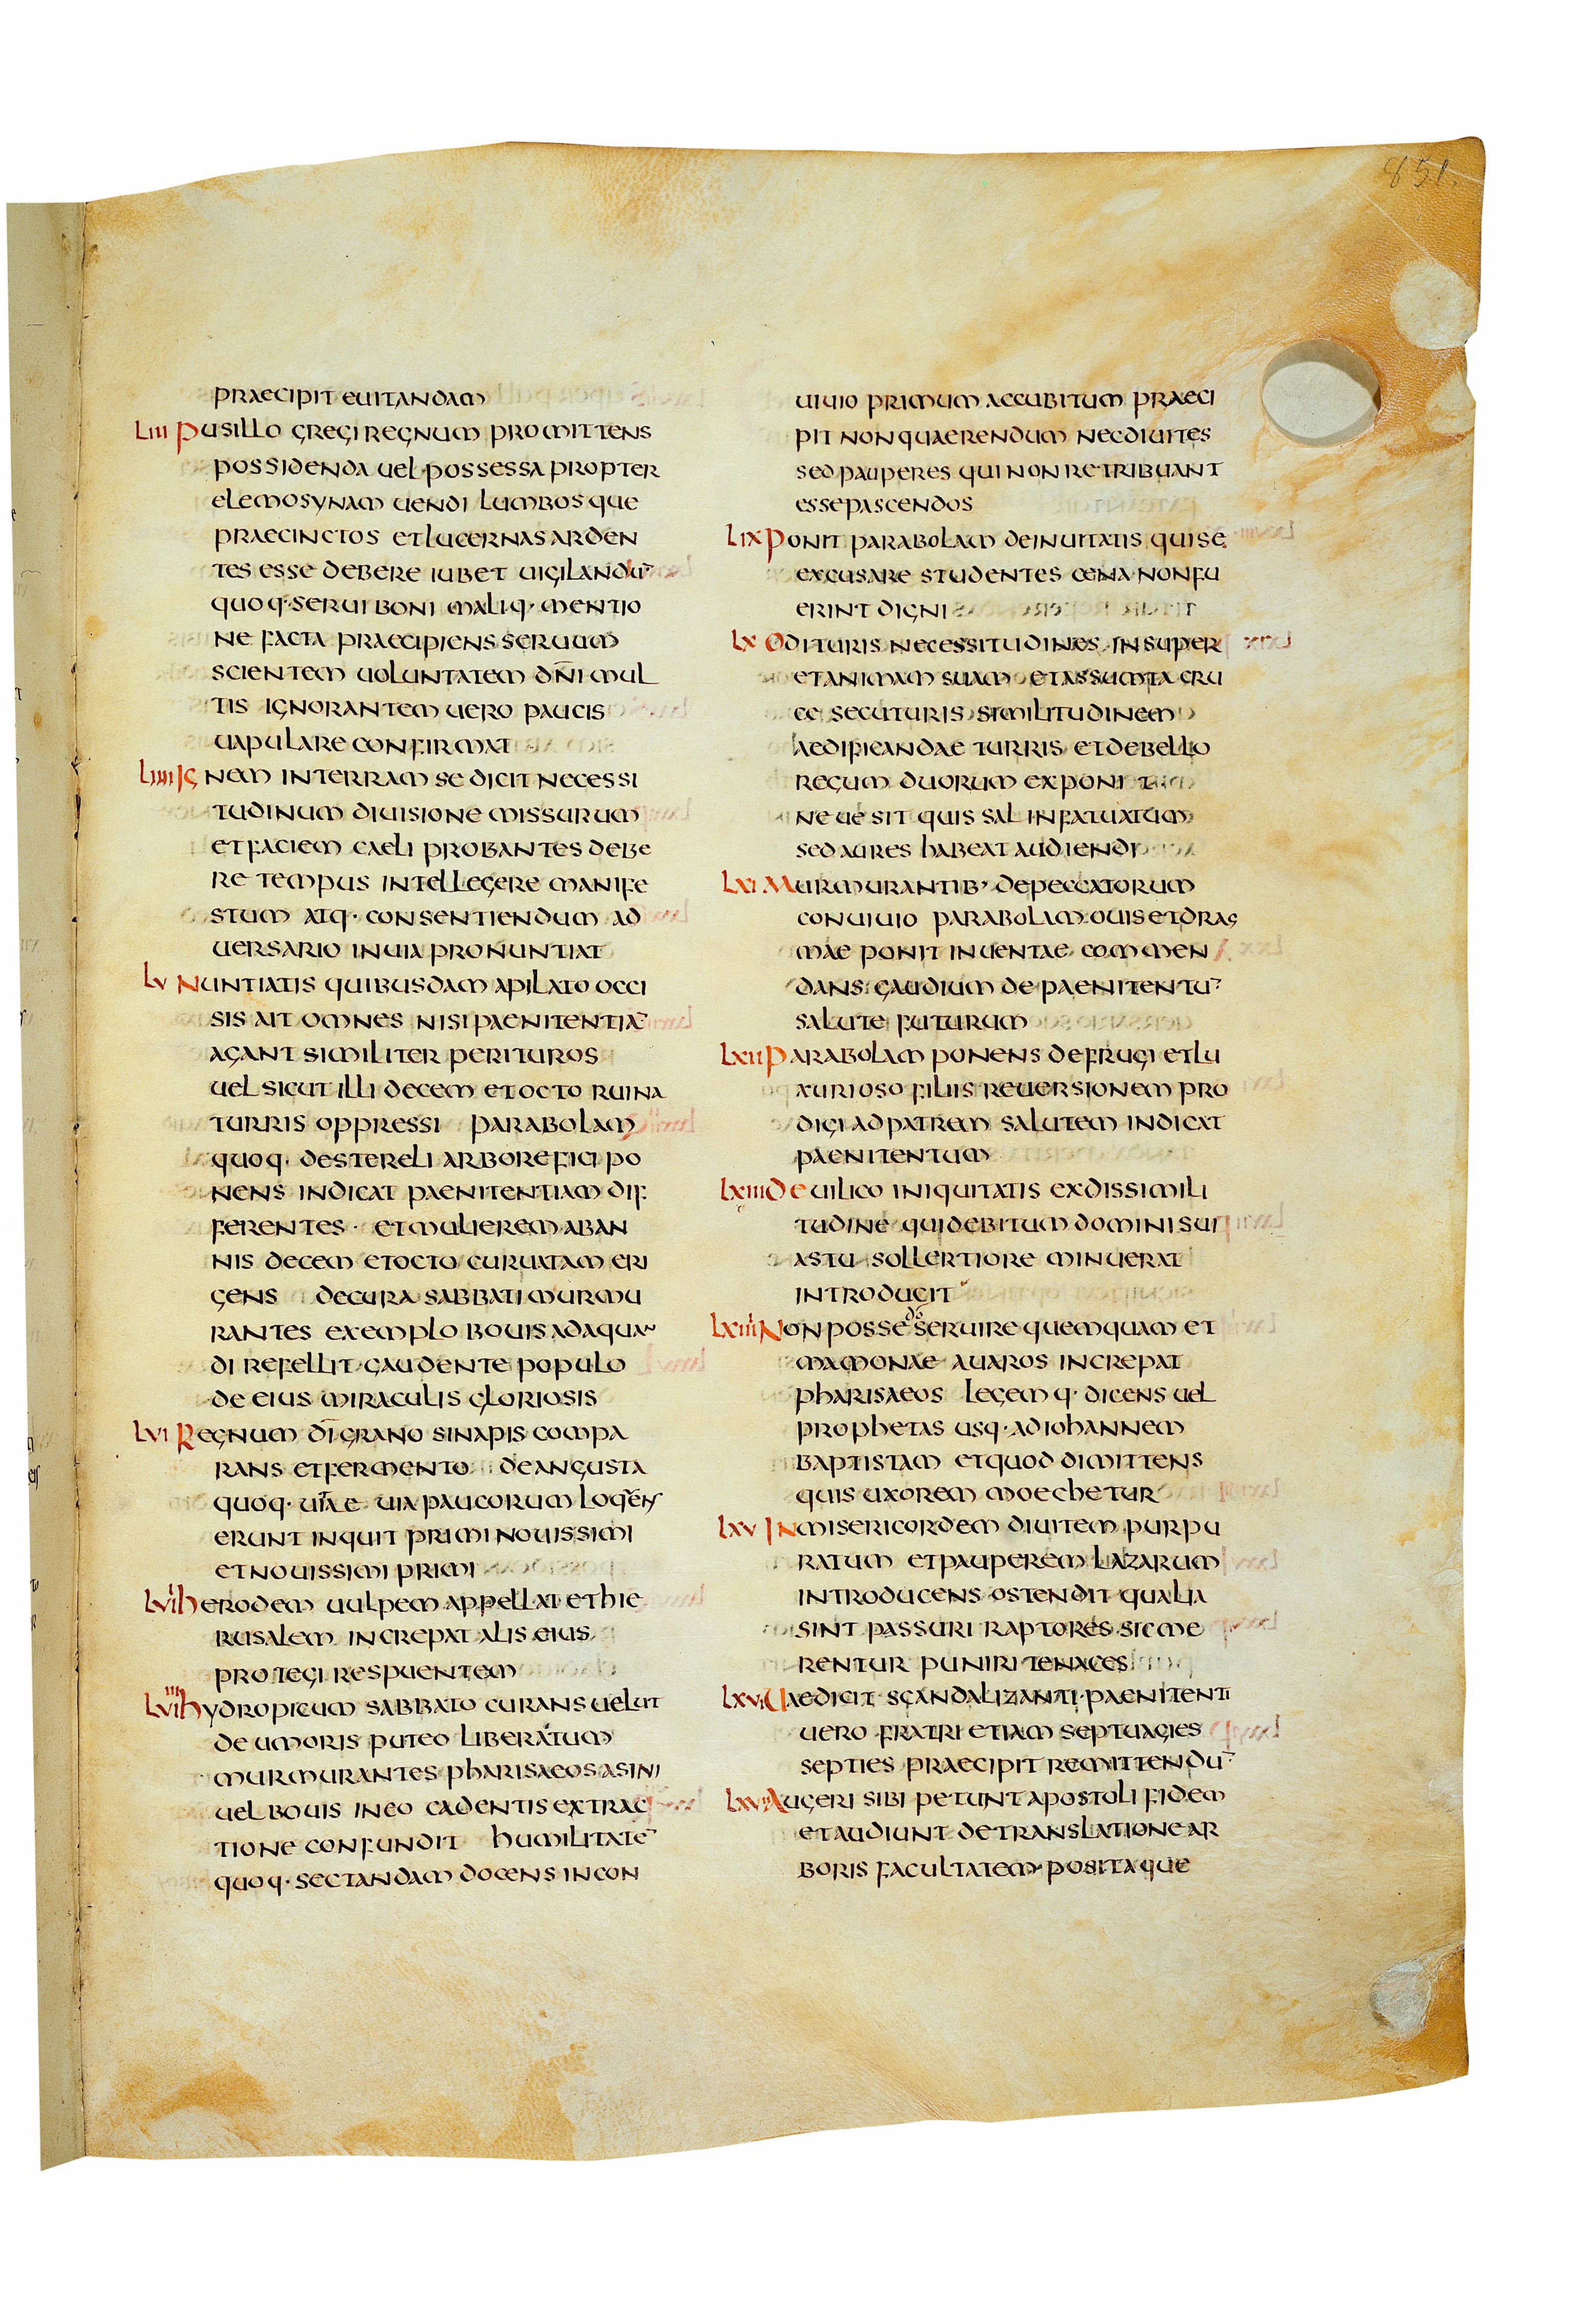 851.
praecipit euitandam
LIII Pusillo gregi regnum promittens
possidenda uel possessa propter
elemosynam uendi lumbosque
praecinctos et lucernas arden
tes esse debere iubet uigilandū
quoq· serui boni maliq· mentio
ne facta praecipiens seruum
scientem uoluntatem dn̄i mul
tis ignorantem uero paucis
uapulare confirmat
LIIII Ignem in terram se dicit necessi
tudinum diuisione missurum
et faciem caeli probantes debe
re tempus intellegere manife
stum atq· consentiendum ad
uersario in uia pronuntiat
LV Nuntiatis quibusdam a pilato occi
sis ait omnes nisi paenitentiā
agant similiter perituros
uel sicut illi decem et octo ruina
turris oppressi parabolam
quoq· de stereli arbore fici po
nens indicat paenitentiam dif
ferentes· et mulierem ab an
nis decem et octo curuatam eri
gens de cura sabbati murmu
rantes exemplo bouis adaquan
di refellit gaudente populo
de eius miraculis gloriosis
LVI Regnum dī grano sinapis compa
rans et fermento de angusta
quoq· uitae uia paucorum loq̄ens
erunt inquit primi nouissimi
et nouissimi primi
LVII Herodem uulpem appellat et hie
rusalem increpat alis eius
protegi respuentem
LVIII Hydropicum sabbato curans uelut
de umoris puteo liberatum
murmurantes pharisaeos asini
uel bouis in eo cadentis extrac
tione confundit humilitatē
quoq· sectandam docens in con
uiuio primum accubitum praeci
pit non quaerendum nec diuites
sed pauperes qui non retribuant
esse pascendos
LIX Ponit parabolam de inuitatis qui se
excusare studentes cena non fu
erint digni
LX Odituris necessitudines insuper
et animam suam et assumta cru
ce secuturis similitudinem
aedificandae turris et de bello
regum duorum exponit
ne ue sit quis sal infatuatum
sed aures habeat audiendi
LXI Murmurantib· de peccatorum
conuiuio parabolam ouis et drag
mae ponit inuentae commen
dans gaudium de paenitentū
salute futurum
LXII Parabolam ponens de frugi et lu
xurioso filiis reuersionem pro
digi ad patrem salutem indicat
paenitentum
LXIII De uilico iniquitatis ex dissimili
tudine qui debitum domini sui
astu sollertiore minuerat
introducit
LXIIII Non posse dō seruire quemquam et
mamonae auaros increpat
pharisaeos legemq· dicens uel
prophetas usq· ad iohannem
baptistam et quod dimittens
quis uxorem moechetur
LXV Inmisericordem diuitem purpu
ratum et pauperem lazarum
introducens ostendit qualia
sint passuri raptores sic me
rentur puniri tenaces
LXVI Uae dicit scandalizanti paenitenti
uero fratri etiam septuagies
septies praecipit remittendū
LXVII Augeri sibi petunt apostoli fidem
et audiunt de translatione ar
boris facultatem positaque